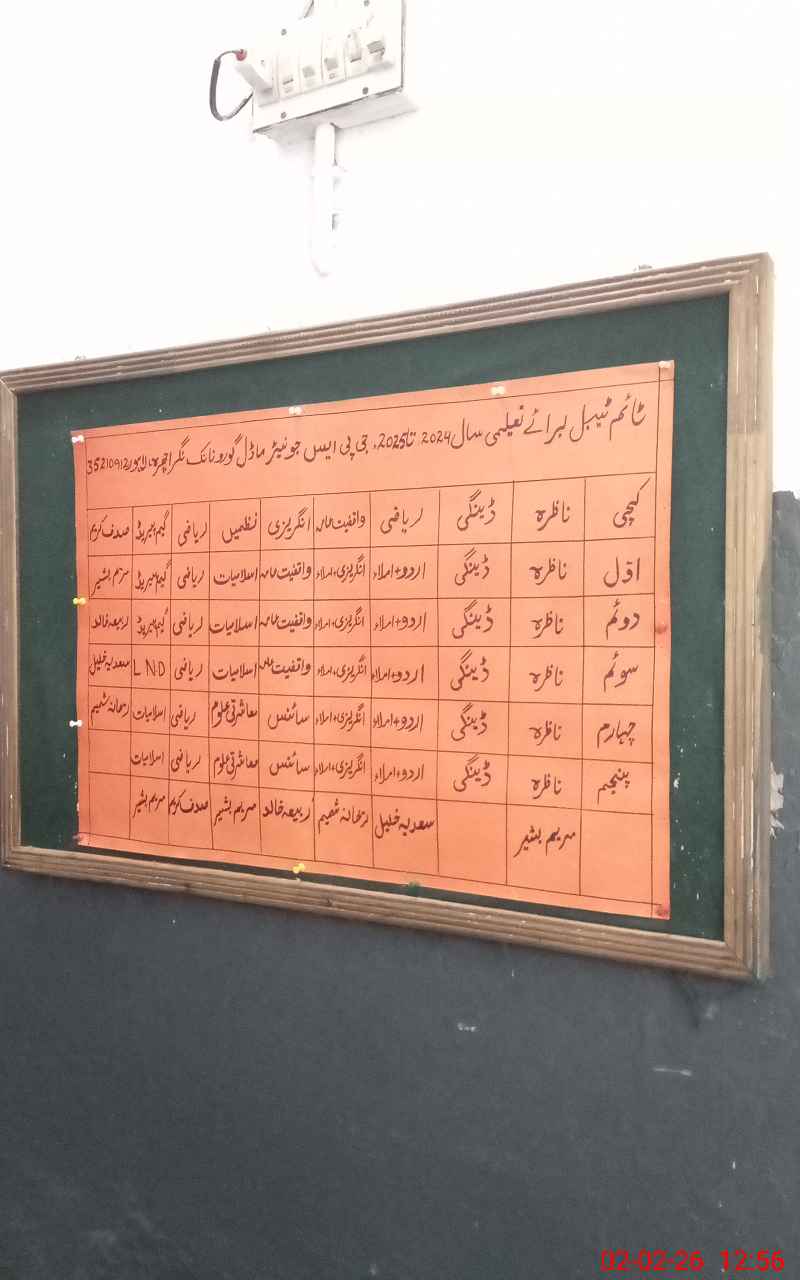 ٹائم ٹیبل برائے تعلیمی سال 2024 تا 2025ء جی پی ایس جونیئر ماڈل گورو نانک نگر اچھرہ، لاہور 35210912
کچی ناظرہ ڈینگی ریاضی واقفیت عامہ انگریزی نظمیں ریاضی گیم پیریڈ صدف کریم
اوّل ناظرہ ڈینگی اردو+املاء انگریزی+املاء واقفیت عامہ اسلامیات ریاضی گیم پیریڈ مریم بشیر
دوئم ناظرہ ڈینگی اردو+املاء انگریزی+املاء واقفیت عامہ اسلامیات ریاضی گیم پیریڈ ربیعہ خالد
سوئم ناظرہ ڈینگی اردو+املاء انگریزی+املاء واقفیت عامہ اسلامیات ریاضی LND سعدیہ خلیل
چہارم ناظرہ ڈینگی اردو+املاء انگریزی+املاء سائنس معاشرتی علوم ریاضی اسلامیات ریحانہ شمیم
پنجم ناظرہ ڈینگی اردو+املاء انگریزی+املاء سائنس معاشرتی علوم ریاضی اسلامیات
مریم بشیر سعدیہ خلیل ریحانہ شمیم ربیعہ خالد مریم بشیر صدف کریم مریم بشیر
02-02-26 12:56